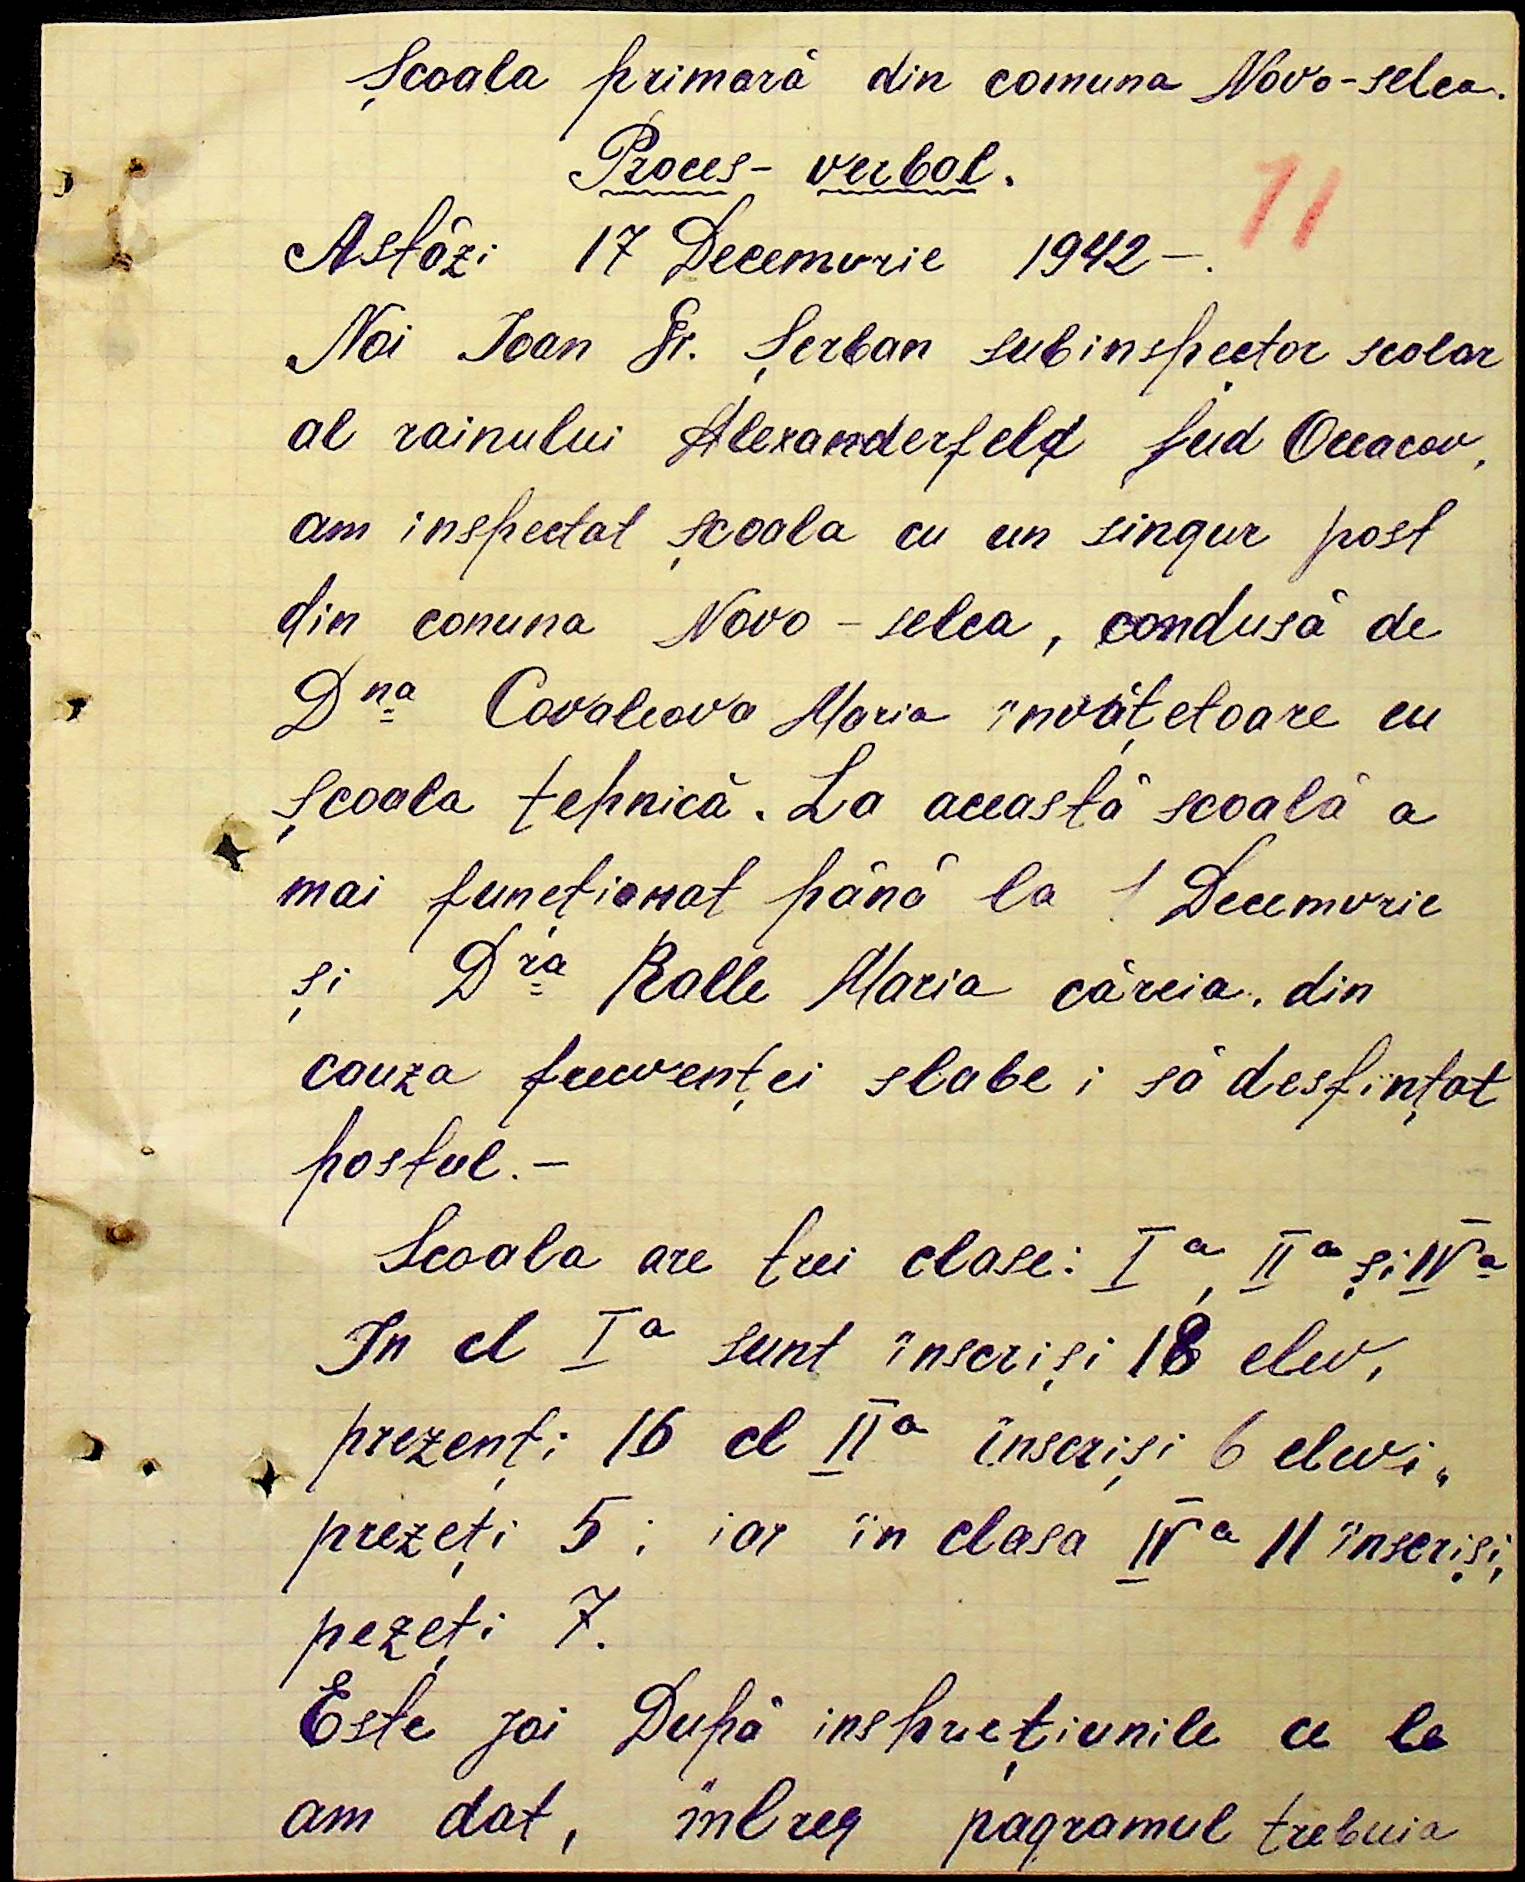 Școala primară din comuna Novo-selca.
Proces-verbal.
11
Astăzi 17 Decemvrie 1942-.
Noi Ioan Gr. Șerban subinspector scolar
al rainului Alexanderfeld jud Oceacov,
am inspectat școala cu un singur post
din conuna Novo-selca, condusă de
Dna Covalcova Maria învățetoare cu
școala tehnică. La această scoală a
mai funcționat până la 1 Decemvrie
și Dra Ralle Maria căreia, din
cauza frecvenței slabe i să desfințat
postul.-
Scoala are trei clase: I a, II a și IV a
In cl I a sunt înscriși 18 elev,
prezenți 16 cl II a înscriși 6 elevi,
prezeți 5; iar în clasa IV a 11 înscriși,
pezeți 7.
Este joi După inspruețiunile ce le
am dat, întreg pagramul trebuia